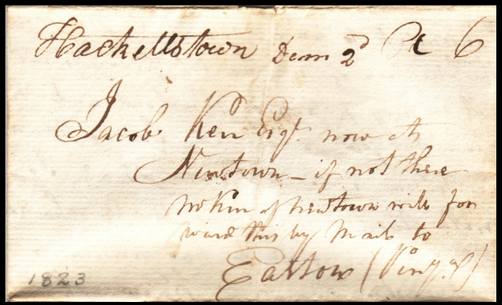 Hackettstown Dem 2d 6
Jacob Kerr Esqr. now at
Newtown - if not there
of Newtown will for
ward this by Mail to
Easton (
1823